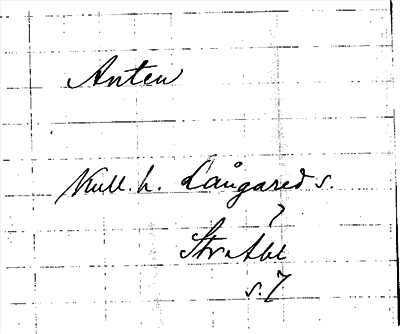 Anten
Kull. h. Långared s.
?
Strábl
s. 7.